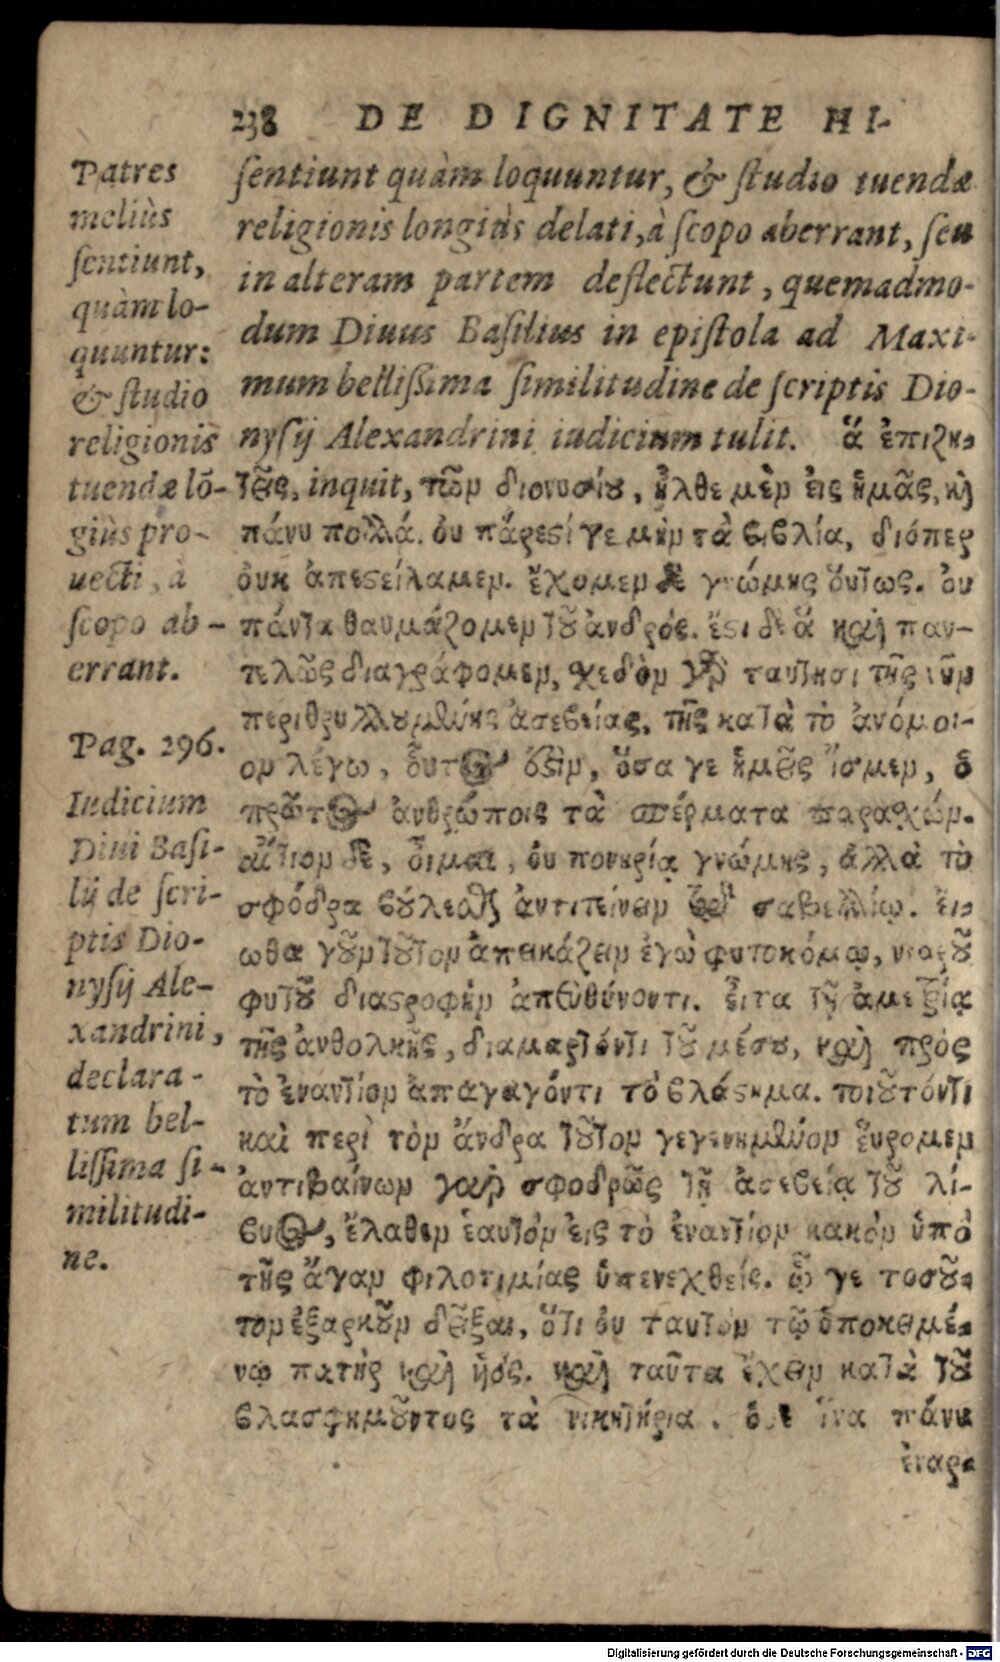 238 DE DIGNITATE HI-
Patres
meliùs
sentiunt,
quàm lo-
quuntur:
& studio
religionis
tuendæ lō-
giùs pro-
uecti, à
scopo ab-
errant.
Pag. 296.
Iudicium
Diui Basi-
lij de scri-
ptis Dio-
nysij Ale-
xandrini,
declara-
tum bel-
lissima si-
militudi-
ne.
sentiunt quàm loquuntur, & studio tuendæ
religionis longiùs delati, à scopo aberrant, seu
in alteram partem deflectunt, quemadmo-
dum Diuus Basilius in epistola ad Maxi-
mum bellissima similitudine de scriptis Dio-
nysij Alexandrini iudicium tulit. ἅ ἐπιζη-
τεῖς, inquit, τῶν διονυσίου, ἦλθε μὲν εἰς ἡμᾶς, καὶ
πάνυ πολλά. οὐ πάρεστί γε μὴν τὰ βιβλία, διόπερ
οὐκ ἀπεστείλαμεν. ἔχομεν δὲ γνώμης οὕτως. οὐ
πάντα θαυμάζομεν τοῦ ἀνδρός. ἔστι δὲ ἃ καὶ παν-
τελῶς διαγράφομεν, σχεδὸν γὰρ ταυτησὶ τῆς νῦν
περιθρυλλουμένης ἀσεβείας, τῆς κατὰ τὸ ἀνόμοι-
ον λέγω, οὗτός ἐστιν, ὅσα γε ἡμεῖς ἴσμεν, ὁ
πρῶτος ἀνθρώποις τὰ σπέρματα παρασχών.
αἴτιον δὲ, οἶμαι, οὐ πονηρία γνώμης, ἀλλὰ τὸ
σφόδρα βούλεσθαι ἀντιτείνειν τῷ σαβελλίῳ. εἴ-
ωθα γοῦν τοῦτον ἀπεικάζειν ἐγὼ φυτοκόμῳ, νεαροῦ
φυτοῦ διαστροφὴν ἀπευθύνοντι. εἶτα τῇ ἀμετρίᾳ
τῆς ἀνθολκῆς, διαμαρτόντι τοῦ μέσου, καὶ πρὸς
τὸ ἐναντίον ἀπαγαγόντι τὸ βλάστημα. τοιοῦτόν τι
καὶ περὶ τὸν ἄνδρα τοῦτον γεγενημένον εὕρομεν
ἀντιβαίνων γὰρ σφοδρῶς τῇ ἀσεβείᾳ τοῦ λί-
βυος, ἔλαθεν ἑαυτὸν εἰς τὸ ἐναντίον κακὸν ὑπὸ
τῆς ἄγαν φιλοτιμίας ὑπενεχθείς. ᾧ γε τοσοῦ-
τον ἐξαρκοῦν δεῖξαι, ὅτι οὐ ταυτὸν τῷ ὑποκειμέ-
νῳ πατὴρ καὶ ὑιός. καὶ ταῦτα ἔχειν κατὰ τοῦ
βλασφημοῦντος τὰ νικητήρια. ὁ δὲ ἵνα πάνυ
ἐναρ-
Digitalisierung gefördert durch die Deutsche Forschungsgemeinschaft - DFG